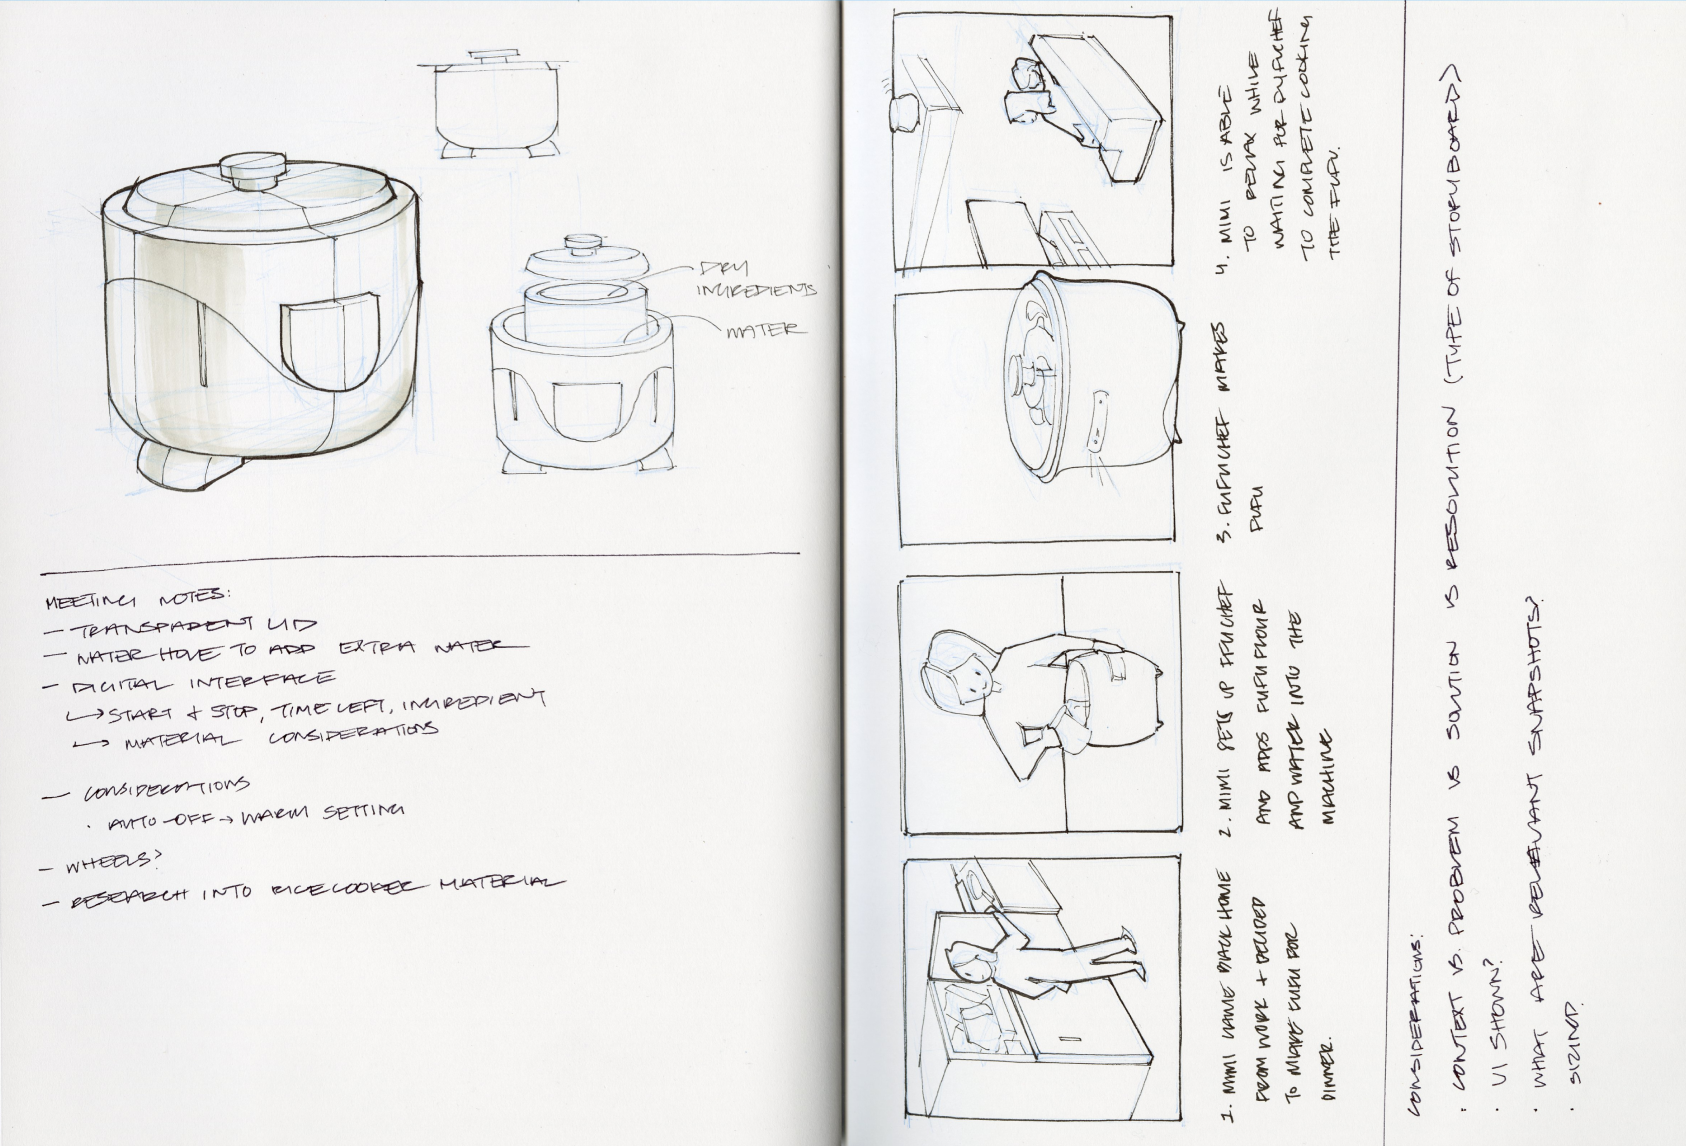 DRY
INGREDIENTS
WATER
MEETING NOTES:
— TRANSPARENT LID
— WATER HOLE TO ADD EXTRA WATER
— DIGITAL INTERFACE
↳ START + STOP, TIME LEFT, INGREDIENT
↳ MATERIAL CONSIDERATIONS
— CONSIDERATIONS
· AUTO-OFF → WARM SETTING
— WHEELS?
— RESEARCH INTO RICE COOKER MATERIAL
1. MIMI CAME BACK HOME
FROM WORK + DECIDED
TO MAKE FUFU FOR
DINNER.
2. MIMI SETS UP FUFUCHEF
AND ADDS FUFU FLOUR
AND WATER INTO THE
MACHINE
3. FUFUCHEF MAKES
FUFU
4. MIMI IS ABLE
TO RELAX WHILE
WAITING FOR FUFUCHEF
TO COMPLETE COOKING
THE FUFU.
CONSIDERATIONS:
· CONTEXT VS. PROBLEM VS SOLUTION VS RESOLUTION (TYPE OF STORYBOARD)
· UI SHOWN?
· WHAT ARE RELEVANT SNAPSHOTS?
· SIZING?